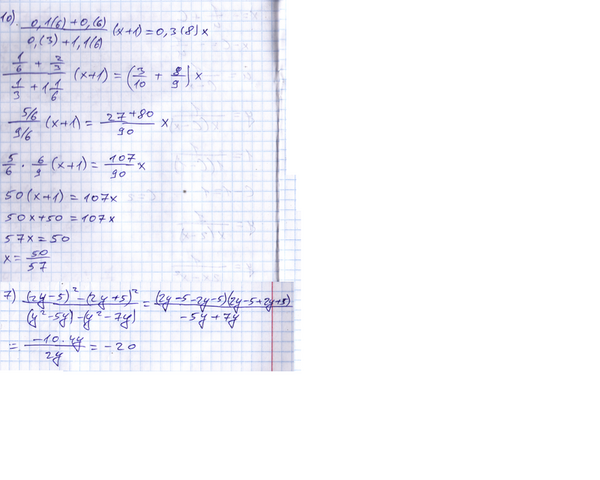 10) (0,1(6) + 0,(6))/(0,(3) + 1,1(6)) (x+1) = 0,3(8) x
(1/6 + 2/3)/(1/3 + 1 1/6) (x+1) = (3/10 + 8/9) x
(5/6)/(9/6) (x+1) = (27+80)/90 x
5/6 · 6/9 (x+1) = 107/90 x
50(x+1) = 107x
50x+50 = 107x
57x = 50
x = 50/57
7) ((2y-5)² - (2y+5)²)/((y²-5y) - (y²-7y)) = ((2y-5-2y-5)(2y-5+2y+5))/(-5y+7y)
= (-10·4y)/(2y) = -20